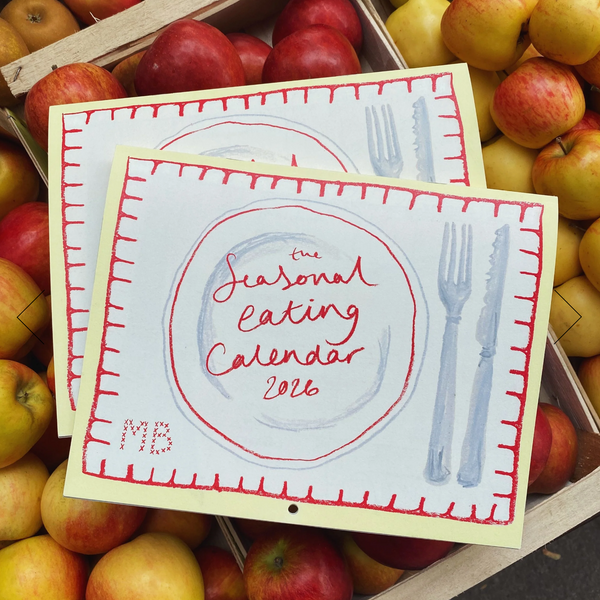 the
Seasonal
eating
Calendar
2026
MR